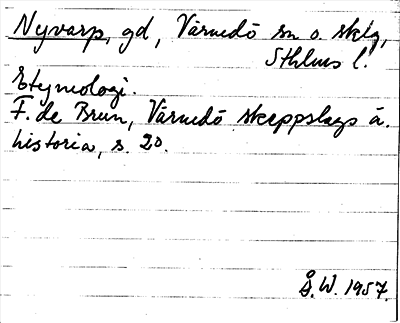 Nyvarp, gd, Värmdö sn o. sklg,
Sthlms l.
Etymologi.
F. de Brun, Värmdö skeppslags ä.
historia, s. 20.
S.W. 1957.